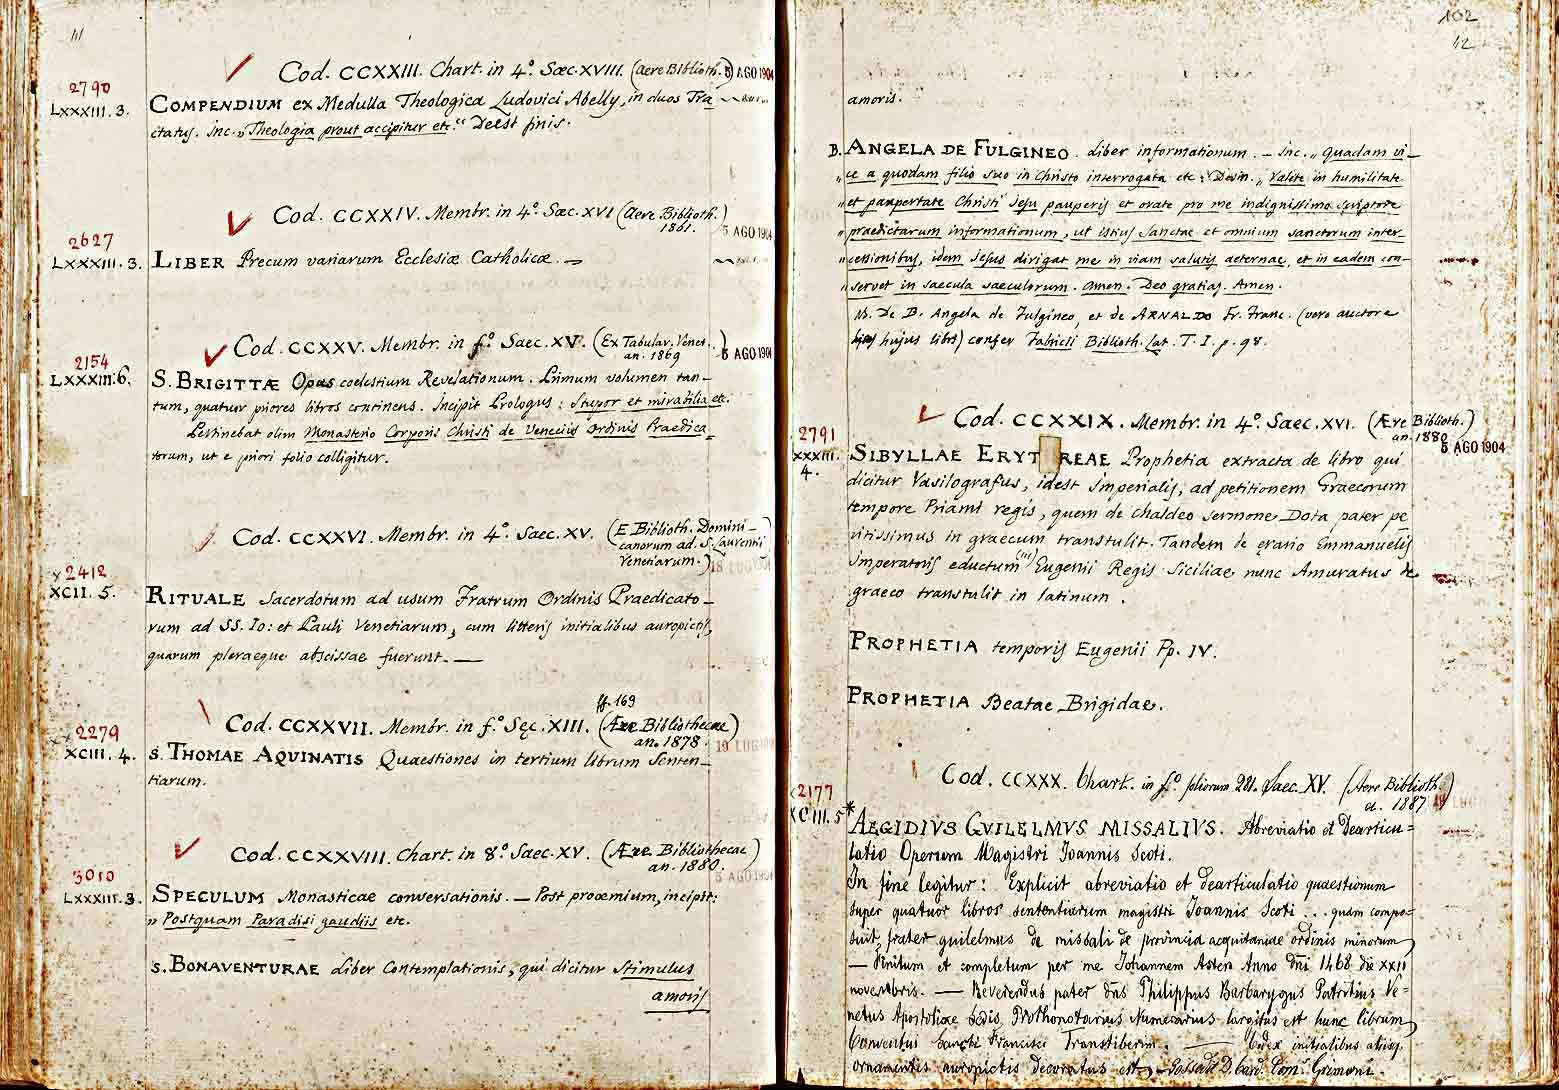 111
Cod. CCXXIII. Chart. in 4.º Sæc. XVIII. (Aere Biblioth.) 5 AGO 1904
2790
LXXXIII. 3.
COMPENDIUM ex Medulla Theologica Ludovici Abelly, in duos Tra
ctatus. Inc. „Theologia prout accipitur etc.“ Deest finis.
Cod. CCXXIV. Membr. in 4.º Sæc. XVI (Aere Biblioth.
1861.) 5 AGO 1904
2627
LXXXIII. 3.
LIBER Precum variarum Ecclesiæ Catholicæ. —
Cod. CCXXV. Membr. in f.º Saec. XV. (Ex Tabular. Venet.
an. 1869) 5 AGO 1904
2154
LXXXIII. 6.
S. BRIGITTÆ Opus coelestium Revelationum. Primum volumen tan-
tum, quatuor priores libros continens. Incipit Prologus: Stupor et mirabilia etc.
Pertinebat olim Monasterio Corporis Christi de Veneciis Ordinis Praedica-
torum, ut e priori folio colligitur.
Cod. CCXXVI. Membr. in 4.º Saec. XV. (E Biblioth. Domini-
canorum ad S. Laurentii
Venetiarum.) 18 LUG
x 2412
XCII. 5.
RITUALE Sacerdotum ad usum Fratrum Ordinis Praedicato-
rum ad SS. Io: et Pauli Venetiarum, cum litteris initialibus auropictis,
quarum pleraeque abscissae fuerunt. —
ff. 169
Cod. CCXXVII. Membr. in f.º Sęc. XIII. (Ære Bibliothecae
an. 1878.) 19 LUG
2279
XCIII. 4.
S. THOMAE AQUINATIS Quaestiones in tertium librum Senten-
tiarum.
Cod. CCXXVIII. Chart. in 8.º Saec. XV. (Ære Bibliothecae
an. 1880.) 5 AGO 1904
3010
LXXXIII. 3.
SPECULUM Monasticae conversationis. — Post prooemium, incipit:
„ Postquam Paradisi gaudiis etc.
S. BONAVENTURAE Liber Contemplationis, qui dicitur Stimulus
amoris
102
12
amoris.
B. ANGELA DE FULGINEO. Liber informationum. — Inc. „ Quadam vi-
„ce a quodam filio suo in Christo interrogata etc. Desin. „ Valete in humilitate
„et paupertate Christi Jesu pauperis et orate pro me indignissimo scriptore
„praedictarum informationum, ut istius Sanctae et omnium sanctorum inter-
„cessionibus, idem Jesus dirigat me in viam salutis aeternae, et in eadem con-
„servet in saecula saeculorum. Amen. Deo gratias. Amen.
N. De B. Angela de Fulgineo, et de ARNALDO Fr. Franc. (vero auctore
hujus libri) confer Fabricii Biblioth. Lat. T. I. p. 98.
Cod. CCXXIX. Membr. in 4.º Saec. XVI. (Ære Biblioth.
an. 1880) 5 AGO 1904
2791
XXXIII.
4.
SIBYLLAE ERYT REAE Prophetia extracta de libro qui
dicitur Vasilografus, idest Imperialis, ad petitionem Graecorum
tempore Priami regis, quem de Chaldeo sermone Dota pater pe-
ritissimus in graecum transtulit. Tandem de ęrario Emmanuelis
Imperatoris eductum Eugenii Regis Siciliae nunc Amuratus de
graeco transtulit in latinum.
PROPHETIA temporis Eugenii Pp. IV.
PROPHETIA Beatae Brigidae.
Cod. CCXXX. Chart. in f.º foliorum 281. Saec. XV. (Aere Biblioth.
a. 1887) 19 LUG
2177
XCIII. 5
*AEGIDIVS GVILELMVS MISSALIVS. Abreviatio et Dearticu=
latio Operum Magistri Joannis Scoti.
In fine legitur: Explicit abreviatio et dearticulatio quaestionum
super quatuor libros sententiarum magistri Joannis Scoti ... quam compo=
suit frater guilelmus de missali de provincia acquitaniae ordinis minorum,
— Finitum et completum per me Johannem Asten Anno dñi 1468 die XXII
novembris. — Reverendus pater dñs Philippus Barbarygus Patritius Ve=
netus Apostolicae Sedis Prothonotarius Numerarius largitus est hunc librum
Conventui Sancti Francisci Transtiberim. — Codex initialibus aliisq.
ornamentis auropictis decoratus est, — Possedit D. Card. Grimani.